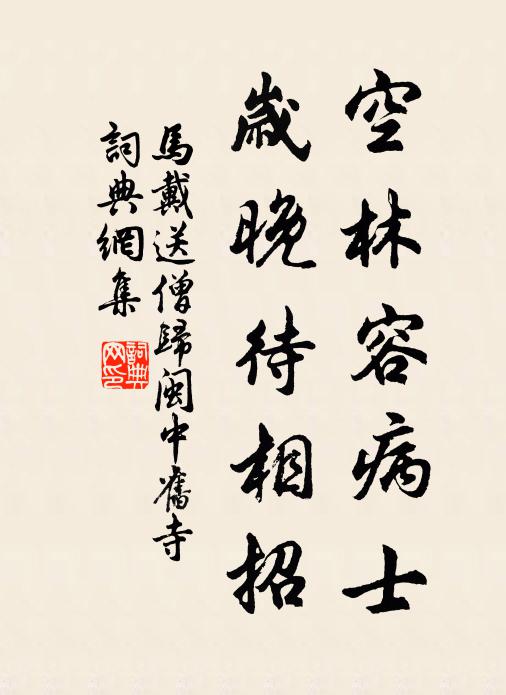 空林容病士
歲晚待相招
馬戴送僧歸閩中舊寺
詞典網集
詞典網印